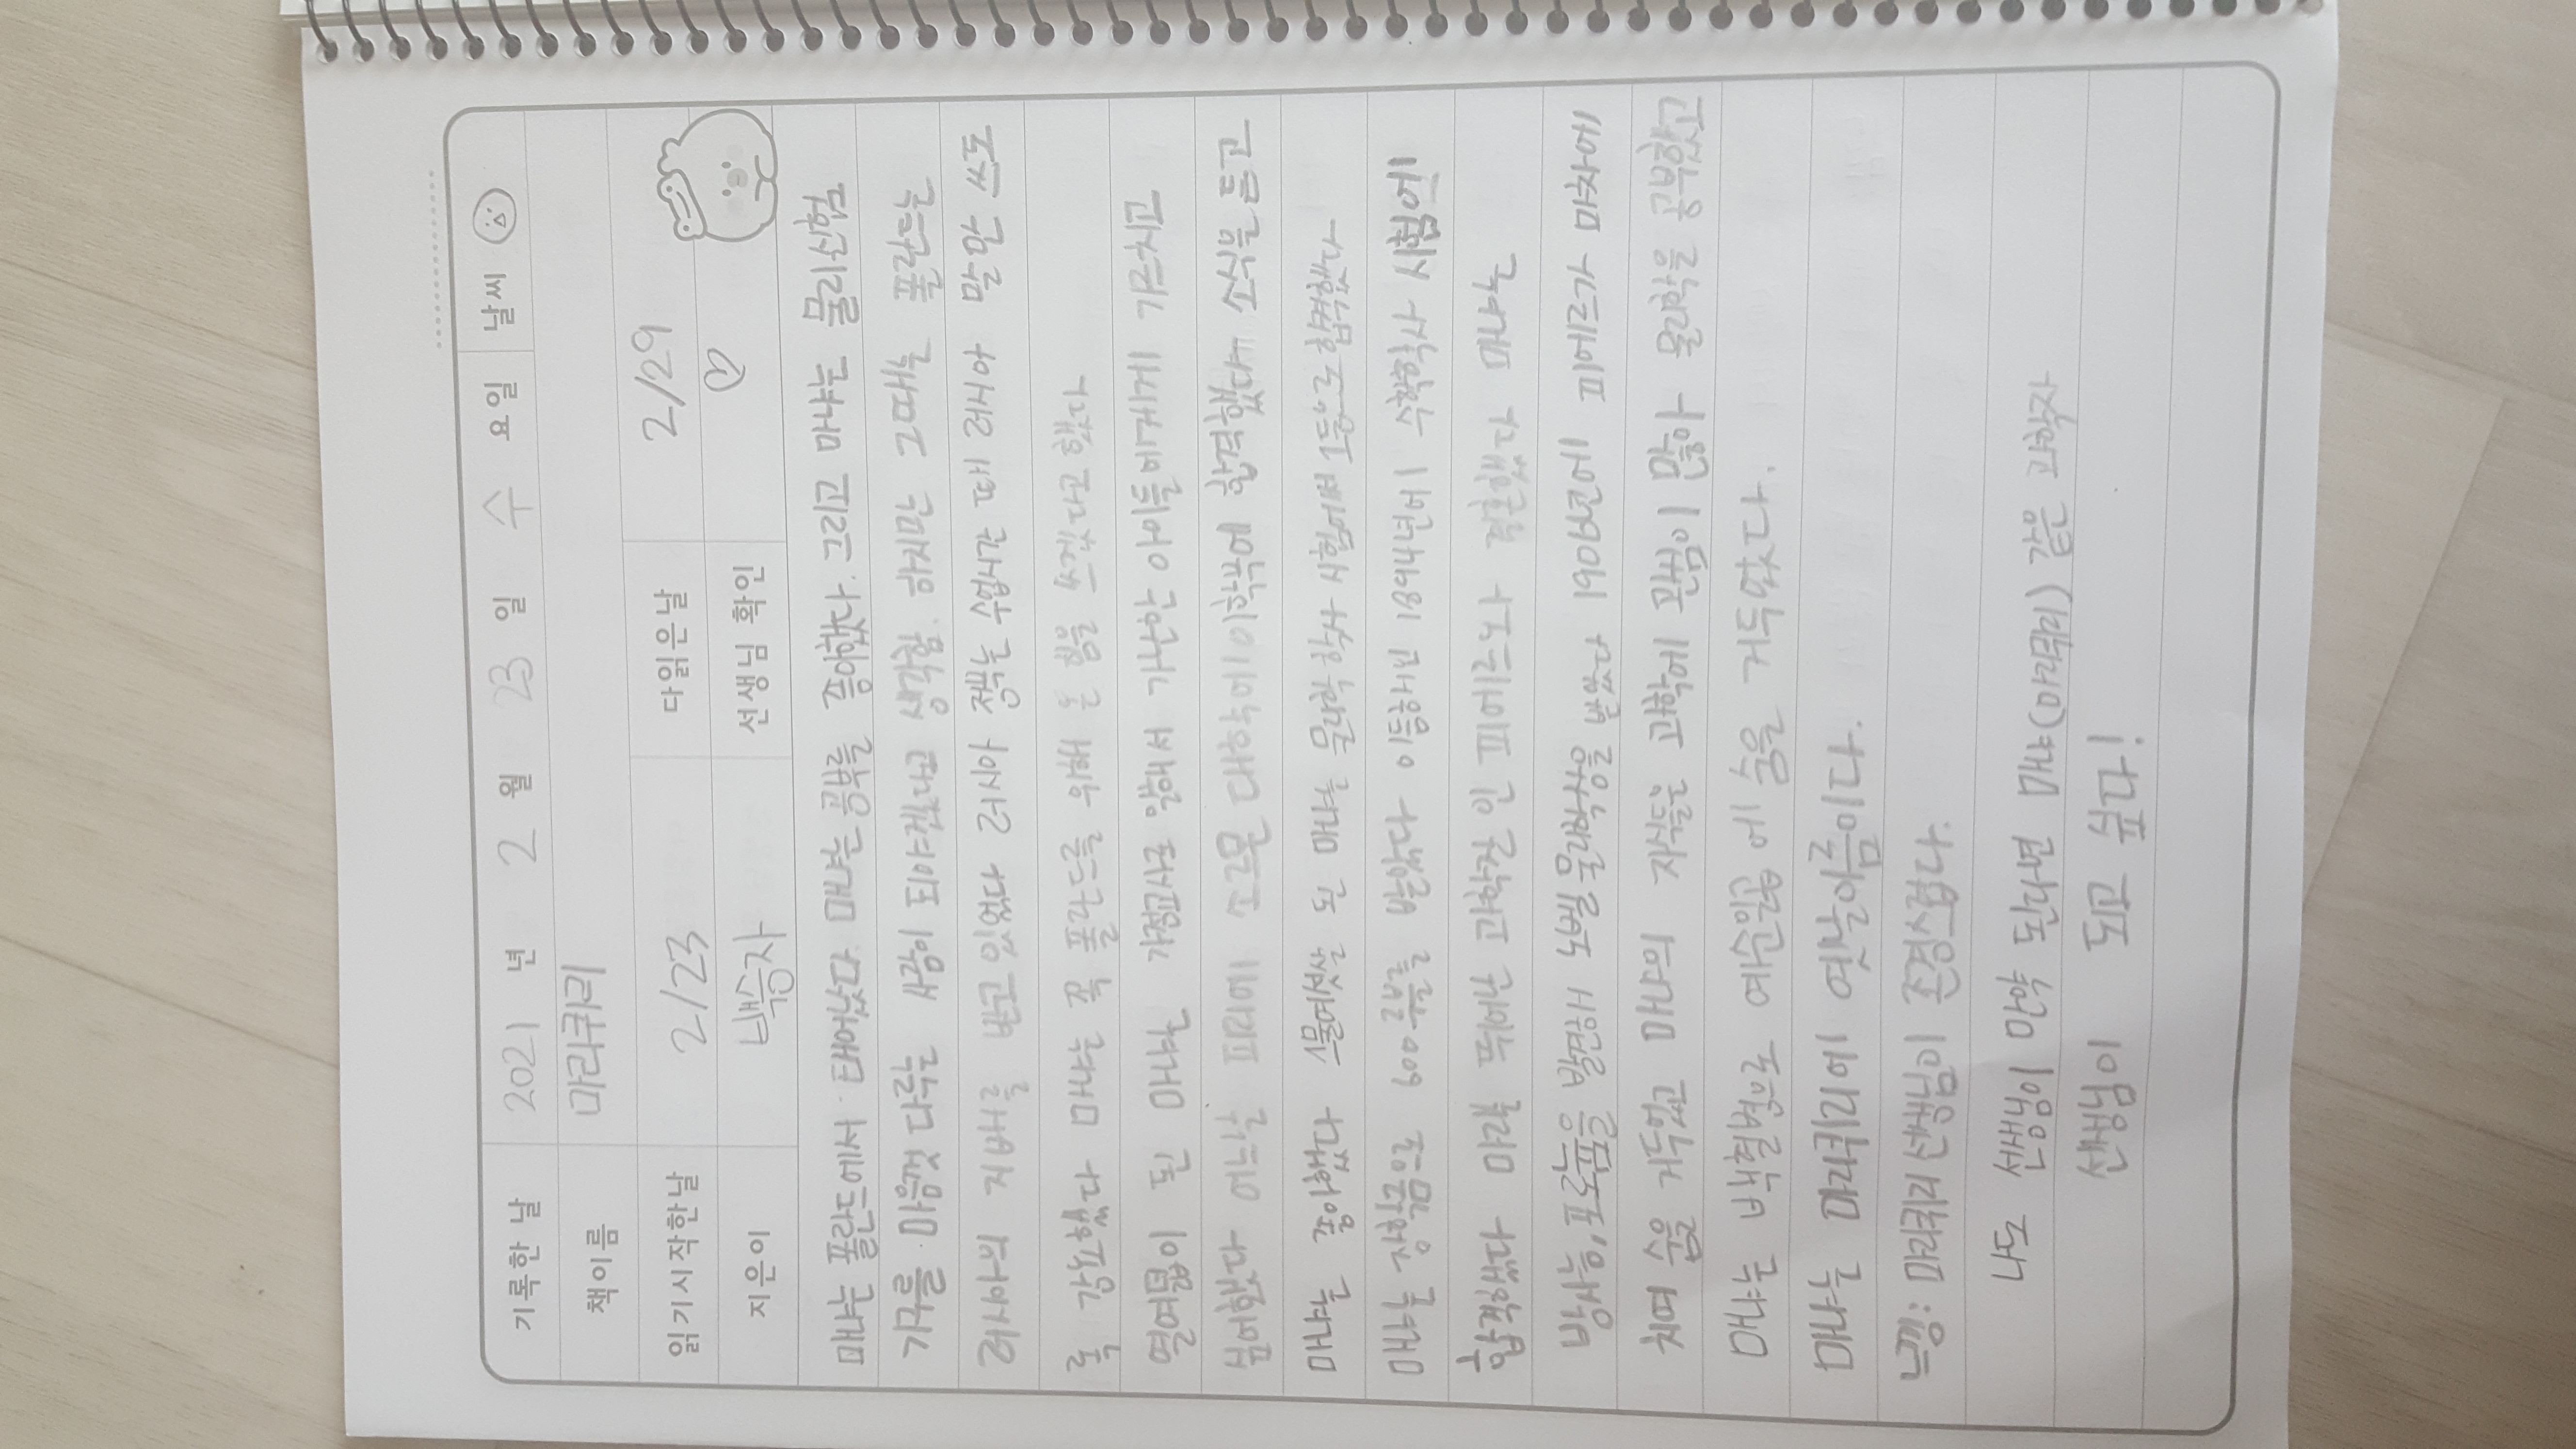 기록한 날 2021 년 2 월 23 일 수 요일 날씨
책이름 마리퀴리
읽기시작한날 2/23 다읽은날 2/29
지은이 백승자 선생님 확인
마냐는 폴란드에서 태어났다. 마냐는 공부를 좋아했다. 그리고 마냐는 물리실험
기구를 마음껏 다루는 사람이 되야겠다고 생각함. 하지만 그때는 폴란드는
러시아의 지배를 받고 있었다 러시아 정부는 수업시간 때 러시아 말만 쓰도
록 강요했다 마냐는 꼭 폴란드를 위해 온 힘을 쓰겠다고 했다
열여덟이 된 마냐는 가정교사로 일해서 가난한 아이들에게 가르치고
싶어했다 어느날 파리에 소르몬 대학에 이학부에 합격했다 소식을 듣고
마냐는 좋아했다 스물여섯살 된 마냐는 물리학 학사 시험에서 1등으로 합격했다
마냐는 장학금으로 600루블를 받았다 이듬해인 1894년에 수학학사 시험에
합격했다 뛰어난 과학자 인 피에르와 결혼했다 마냐는
방사능, 포로늄을 발견해 노벨 물리학상을 받았다 1906년에 피에르가 마차에
치여 숨을 거두었고 마냐의 자식들은 과학에 관심이 많아 물리학을 공부했고
마냐는 백혈병으로 예순일곱 에 숨을 거두었다.
마냐는 마리퀴리에 옛날이름이다.
느낌: 마리퀴리 선생님이 존경스럽다.
나도 선생님이 만약 된다면 마냐(마리퀴리) 같은 과학자
선생님이 되고 싶다!